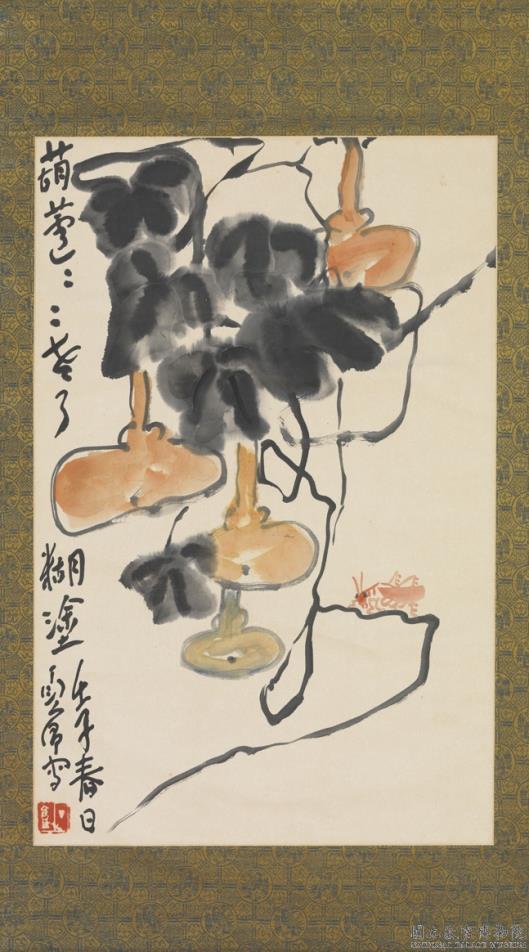 葫蘆〻〻老了
糊塗
壬子春日
寫
國立故宮博物院
NATIONAL PALACE MUSEUM